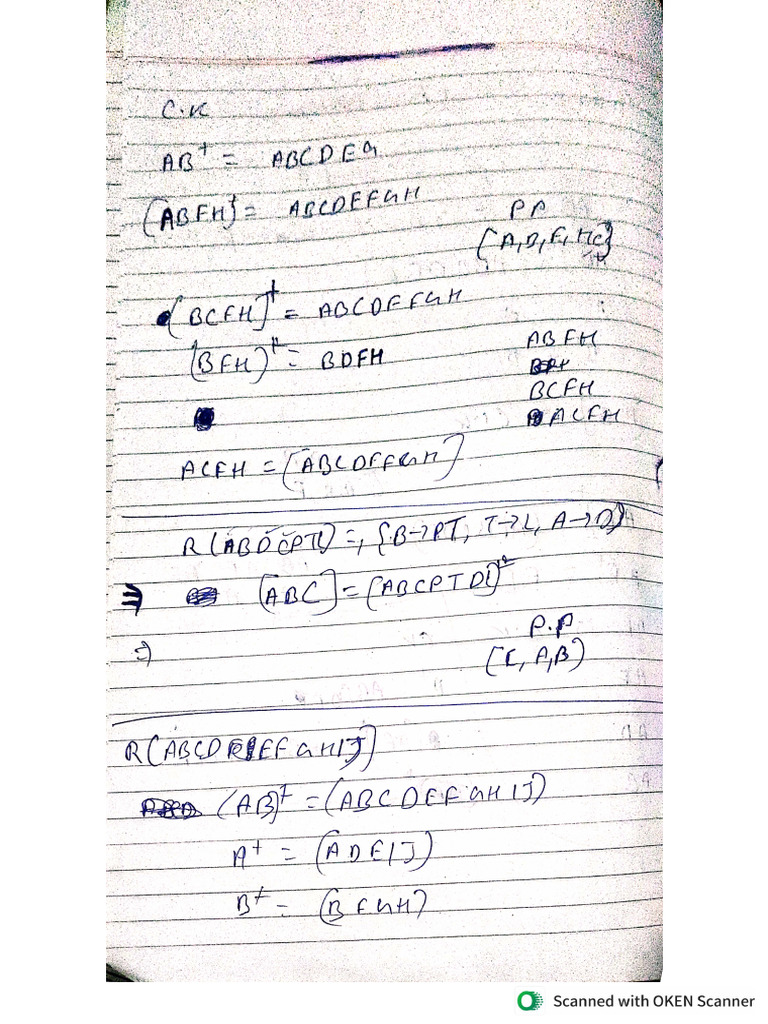 C.K
AB⁺ = ABCDEG
(ABFH)⁺ = ABCDEFGH
P A
{A, B, F, H, C}
(BCFH)⁺ = ABCDEFGH
(BFH)⁺ = BDFH
ABFH
BCFH
ACFH
ACFH = (ABCDEFGH)
R(ABDCPTL) =, {B→PT, T→L, A→D}
⇒ (ABC) = (ABCPTDL)
⇒
P.P
(C, A, B)
R(ABCDEFGHIJ)
(AB)⁺ = (ABCDEFGHIJ)
A⁺ = (ADEIJ)
B⁺ = (BFGH)
Scanned with OKEN Scanner